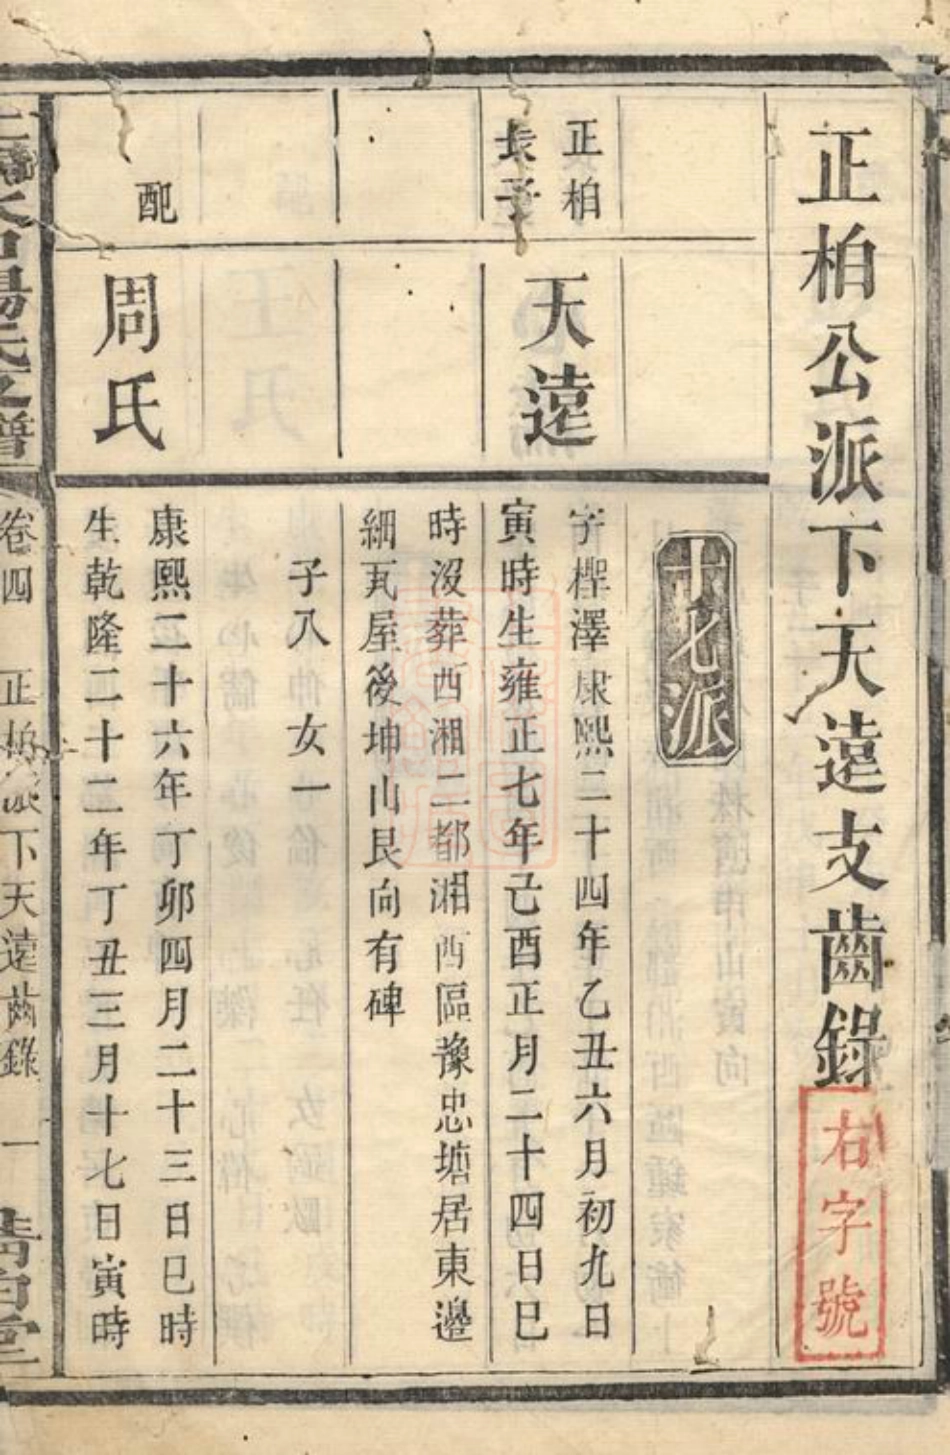 正柏公派下天遠支齒錄
右字號
十七派
正柏
長子
天遠
字檉澤康熙二十四年乙丑六月初九日
寅時生雍正七年己酉正月二十四日巳
時沒葬西湘二都湘西區豫忠塘居東邊
細瓦屋後坤山艮向有碑
子八 女一
配
周氏
康熙二十六年丁卯四月二十三日巳時
生乾隆二十二年丁丑三月十七日寅時
楊氏支譜
卷四 正柏派下天遠齒錄 一 清白堂